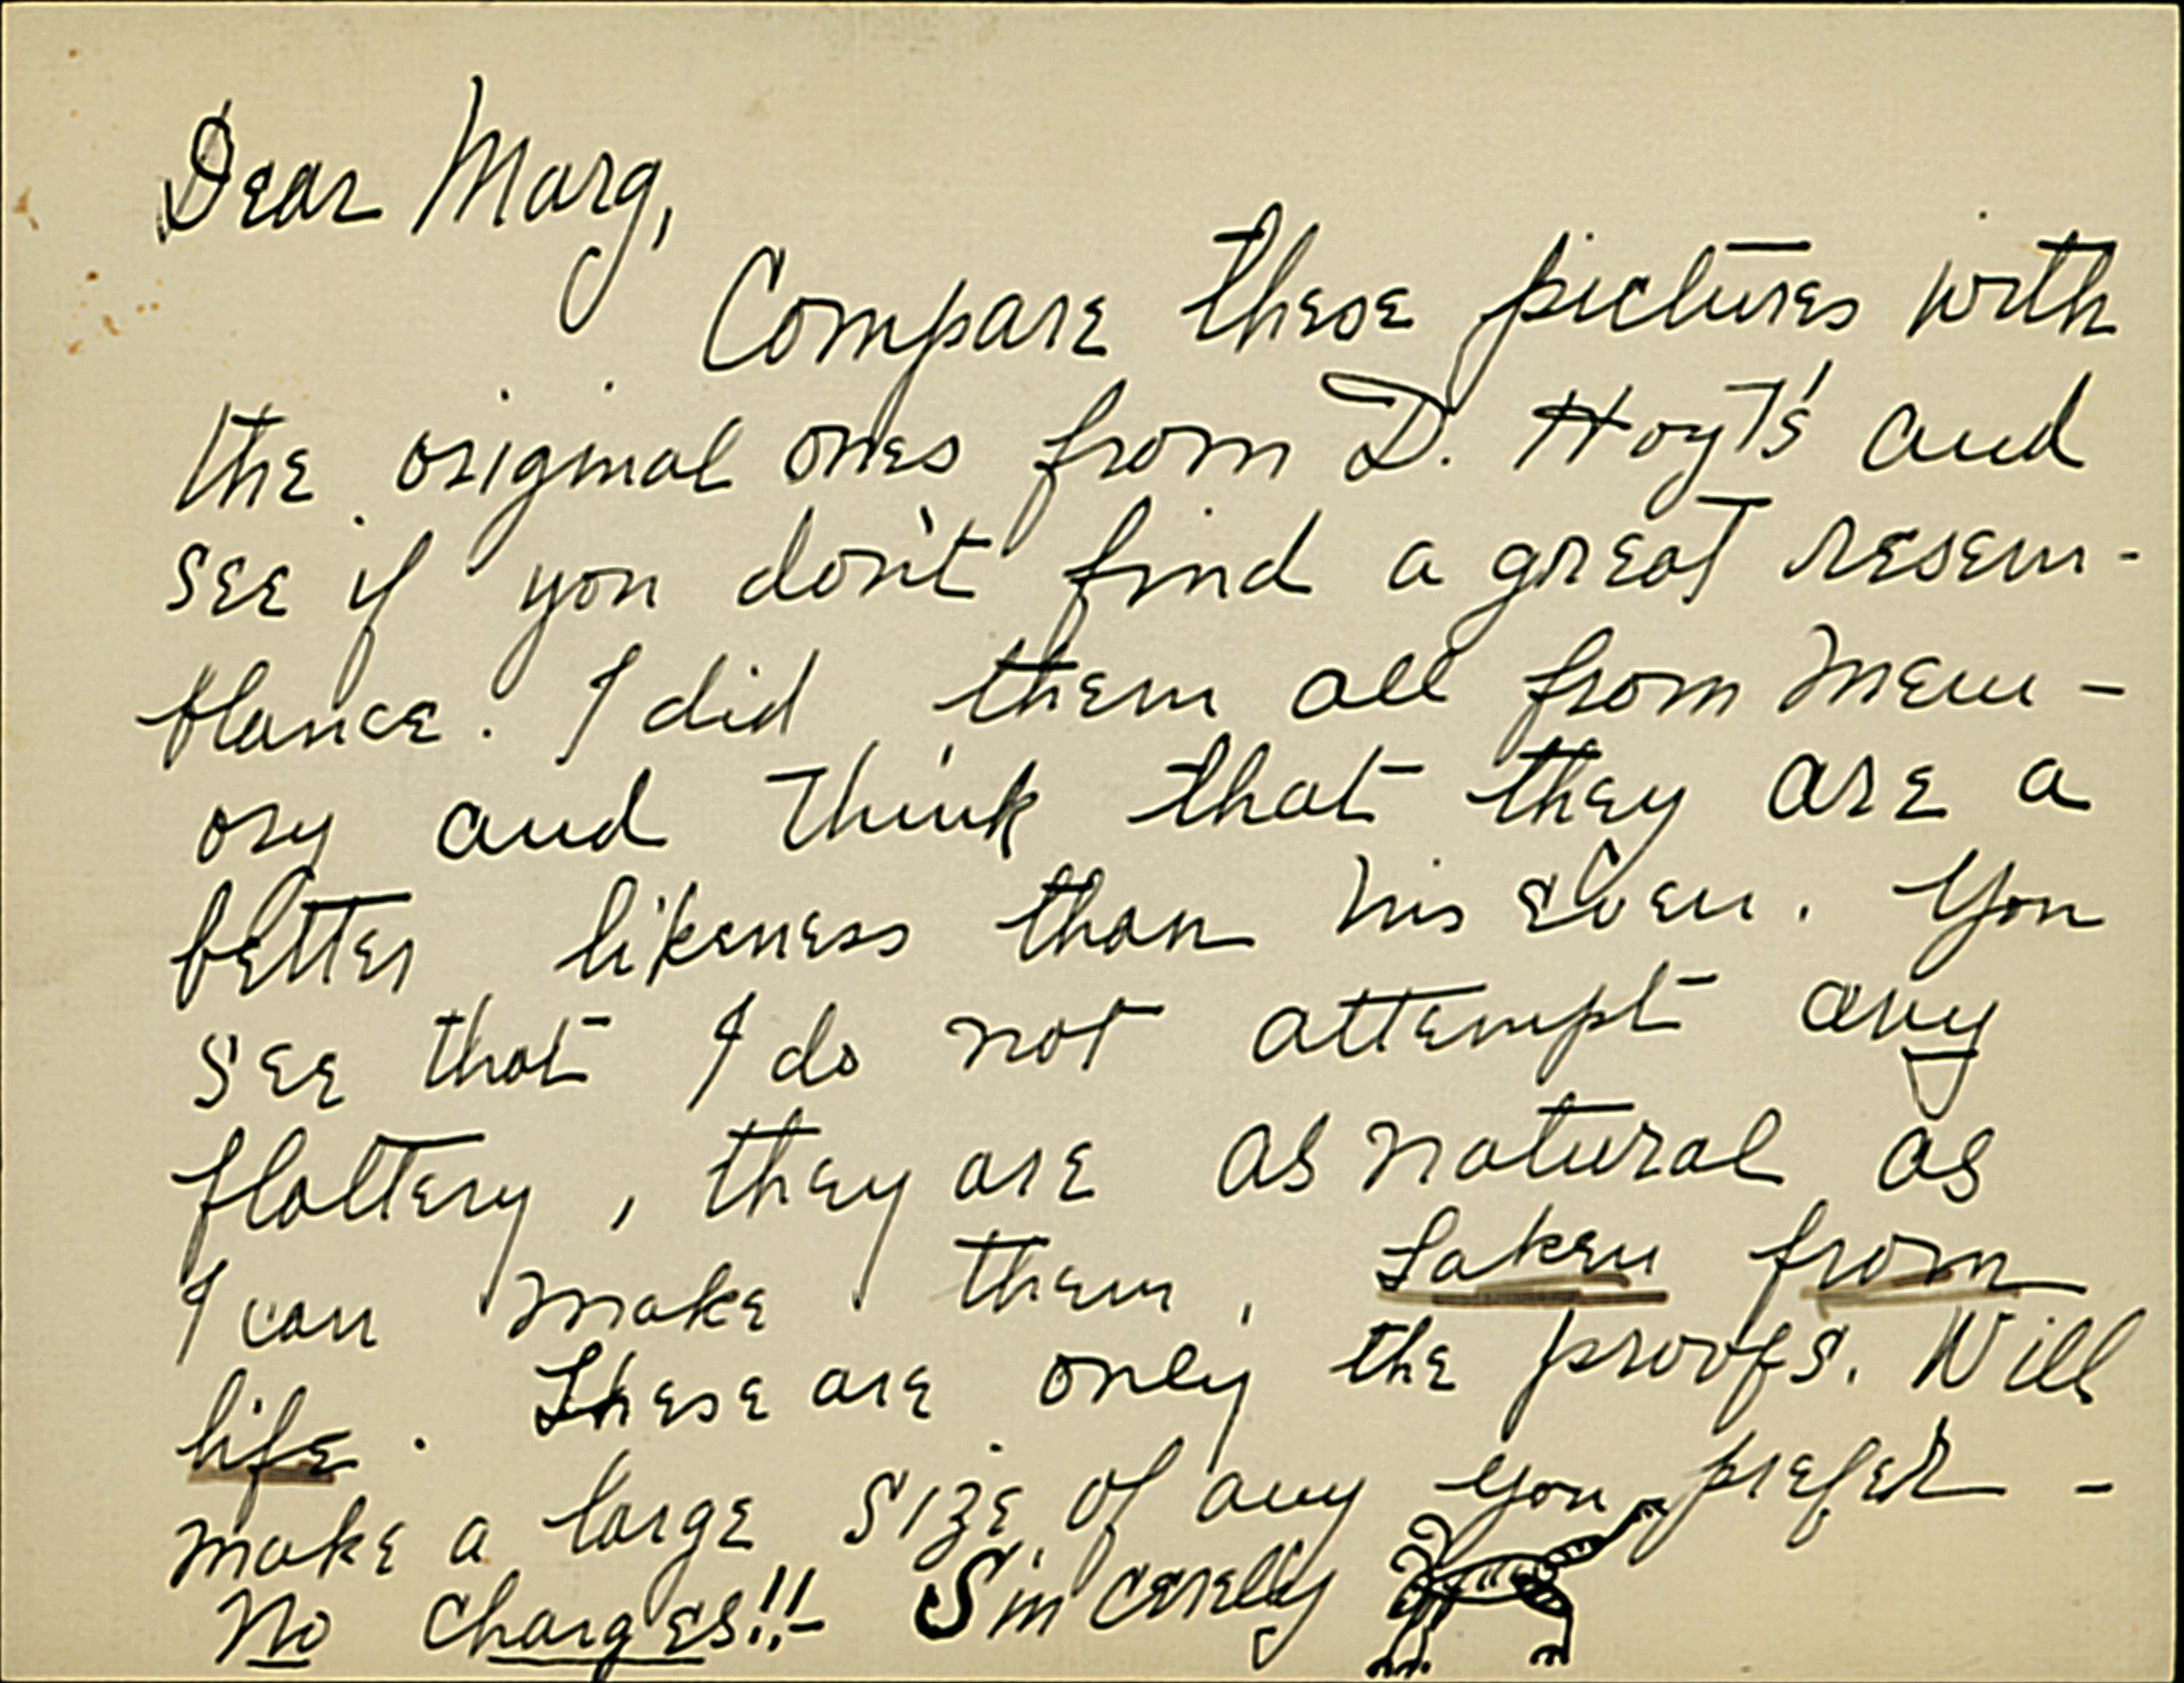 Dear Marg,
Compare these pictures with
the original ones from D. Hoyt's and
see if you don't find a great resem-
blance. I did them all from mem-
ory and think that they are a
better likeness than his even. You
see that I do not attempt any
flattery, they are as natural as
I can make them, taken from
life. These are only the proofs. Will
make a large size of any you prefer -
No charges!!- Sincerelly